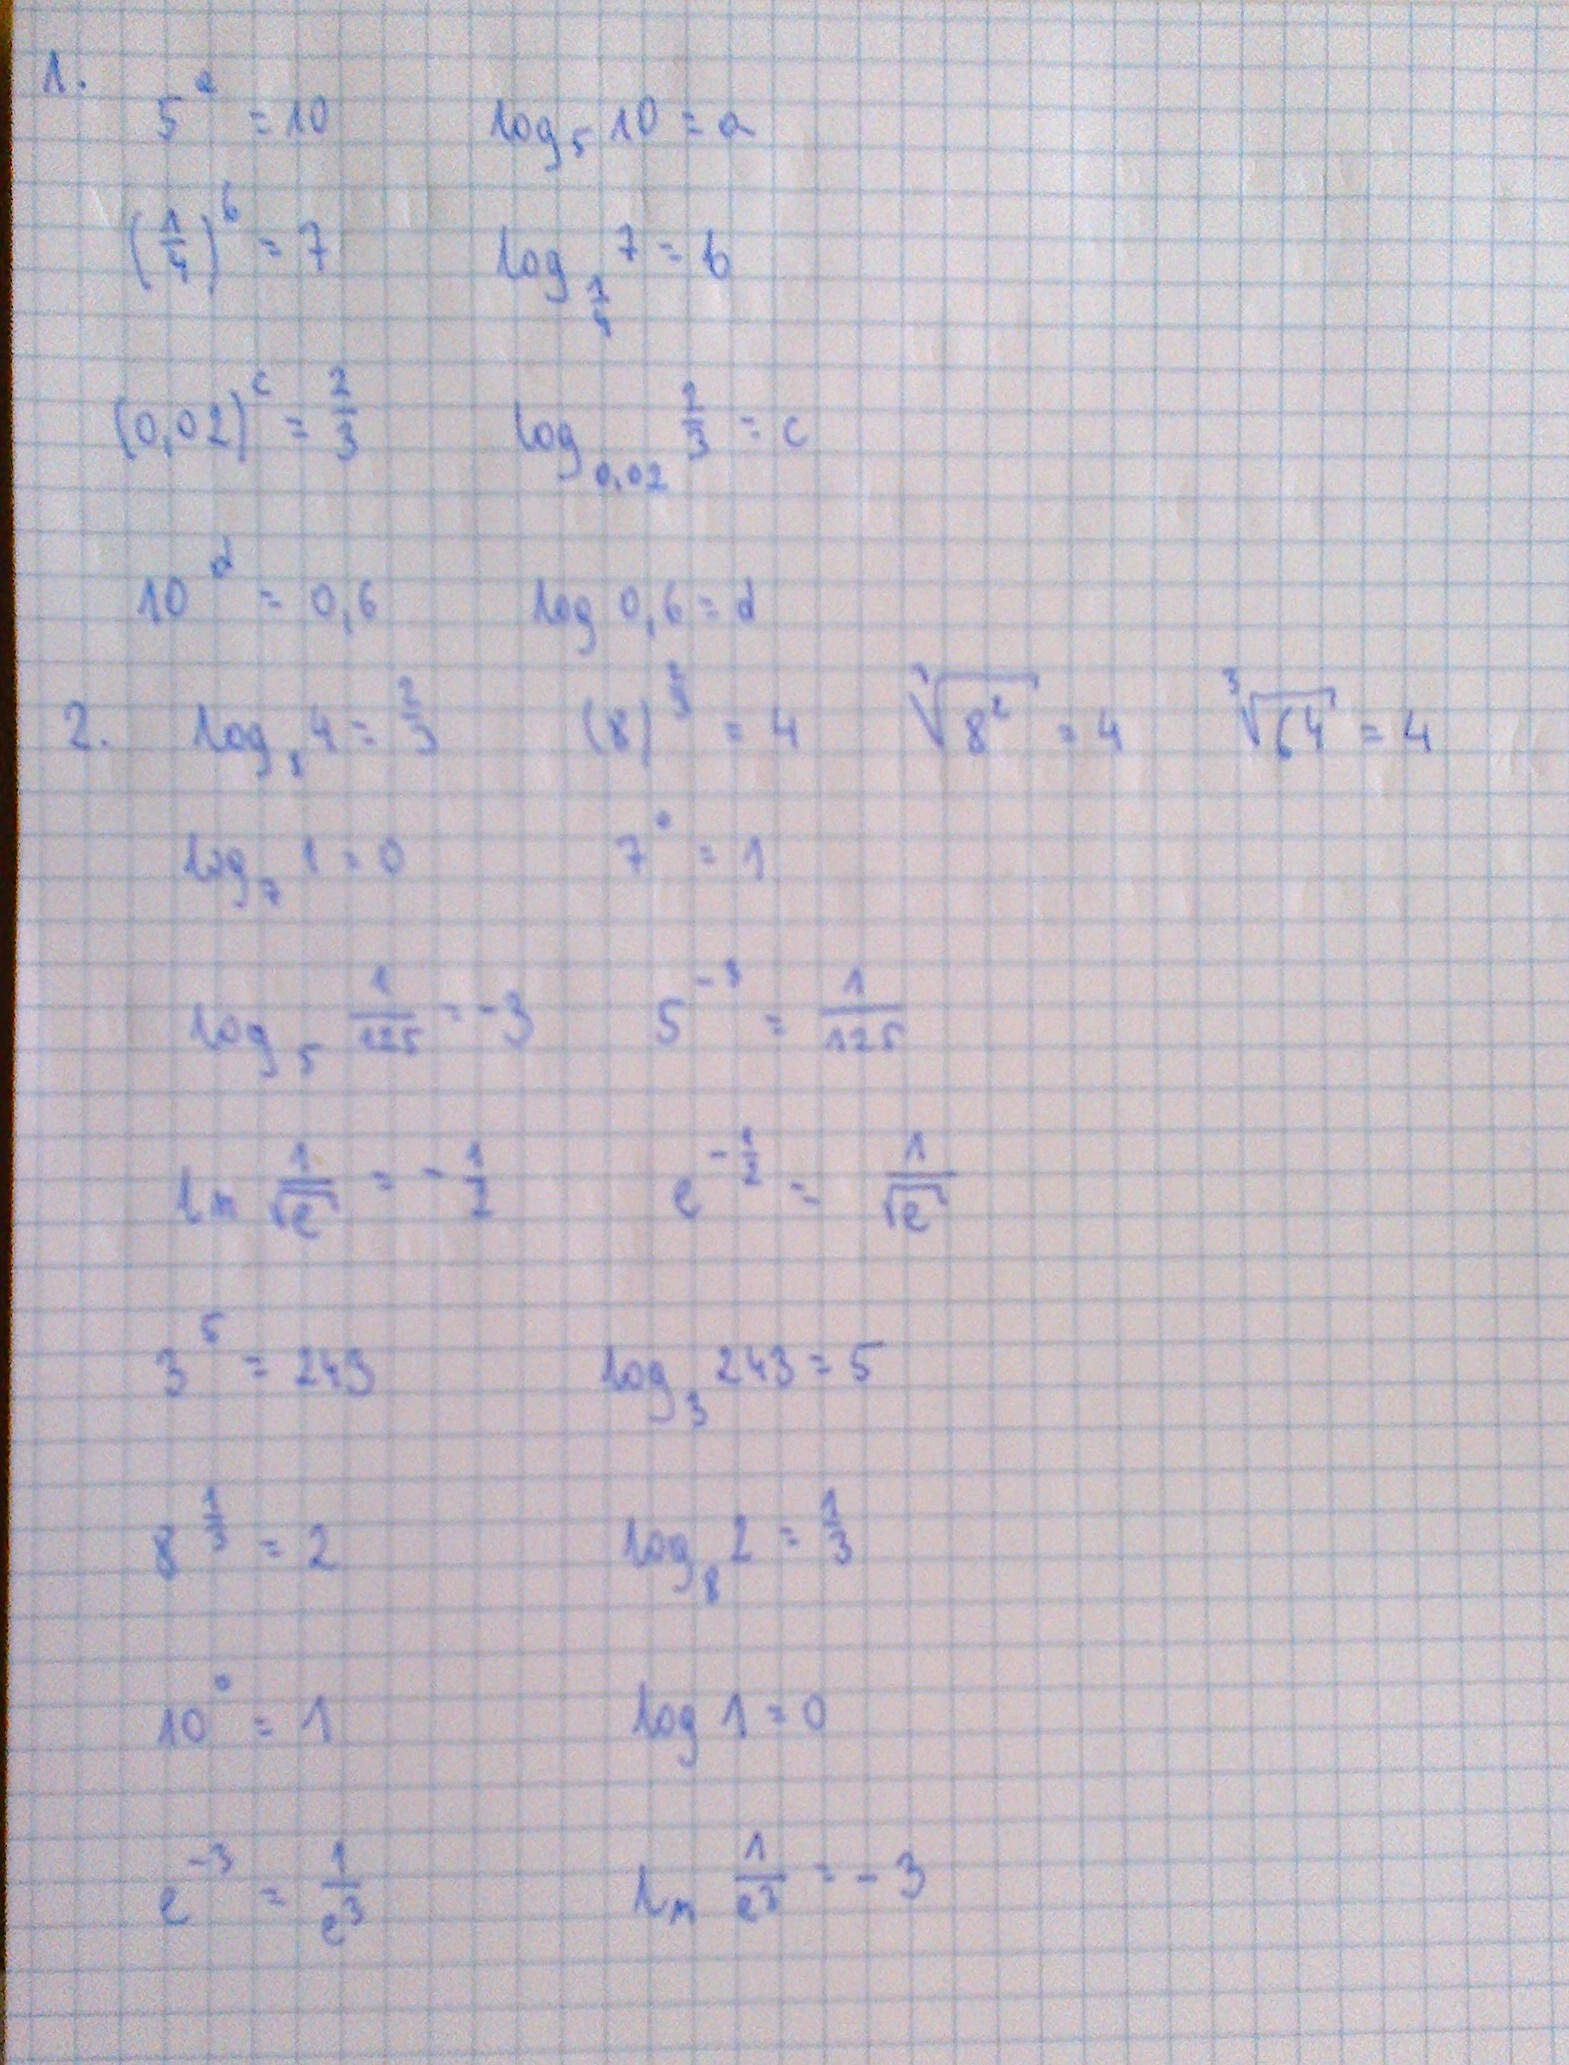 1. 5^a = 10 log_5 10 = a
(1/4)^b = 7 log_{1/4} 7 = b
(0,02)^c = 2/3 log_{0,02} 2/3 = c
10^d = 0,6 log 0,6 = d
2. log_8 4 = 2/3 (8)^{2/3} = 4 ∛(8^2) = 4 ∛64 = 4
log_7 1 = 0 7^0 = 1
log_5 1/125 = -3 5^{-3} = 1/125
ln 1/√e = -1/2 e^{-1/2} = 1/√e
3^5 = 243 log_3 243 = 5
8^{1/3} = 2 log_8 2 = 1/3
10^0 = 1 log 1 = 0
e^{-3} = 1/e^3 ln 1/e^3 = -3